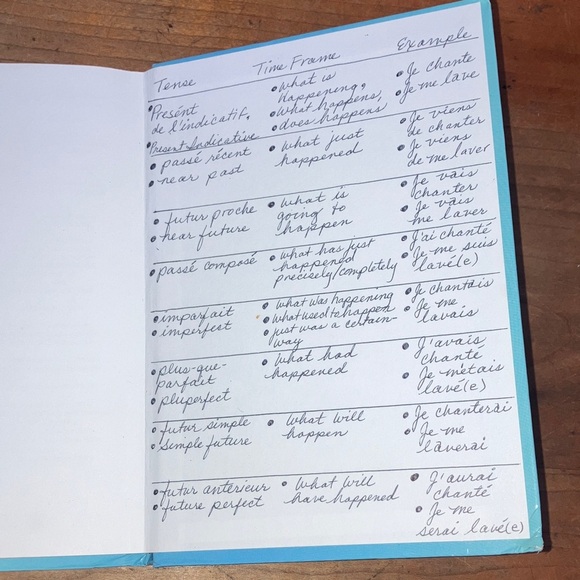 Tense Time Frame Example
• Présént • What is • Je chante
de l'indicatif. happenening, • Je me lave
• Present Indicative • What happens,
• does happens
• passé récent • What just • Je viens
• near past happened de chanter
• Je viens
de me laver
• futur proche • What is • Je vais
• near future going to chanter
happen • Je vais
me laver
• passé composé • What has just • J'ai chanté
happened • Je me suis
precisely/completely lavé(e)
• imparfait • What was happening • Je chantais
• imperfect • What used to happen • Je me
• just was a certain- lavais
way
• plus-que- • What had • J'avais
parfait happened chanté
• pluperfect • Je m'étais
lavé(e)
• futur simple • What will • Je chanterai
• simple future happen • Je me
laverai
• futur antérieur • What will • J'aurai
• future perfect have happened chanté
• Je me
serai lavé(e)